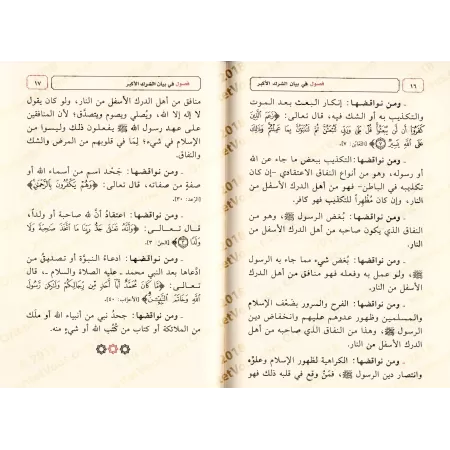 ١٦
فصول في بيان الشرك الأكبر
ـ ومن نواقضها: إنكار البعث بعد الموت
والتكذيب به أو الشك فيه، قال تعالى: ﴿زَعَمَ الَّذِينَ
كَفَرُوا أَن لَّن يُبْعَثُوا قُلْ بَلَىٰ وَرَبِّي لَتُبْعَثُنَّ ثُمَّ لَتُنَبَّؤُنَّ بِمَا عَمِلْتُمْ وَذَٰلِكَ
عَلَى اللَّهِ يَسِيرٌ﴾
ـ ومن نواقضها: التكذيب ببعض ما جاء عن الله
أو رسوله، وهو من أنواع النفاق الاعتقادي -إن كان
تكذيب في الباطن- فهو من أهل الدرك الأسفل من
النار، وإن كان مُظْهِراً للتكذيب فهو كافر.
ـ ومن نواقضها: بُغض الرسول ﷺ، وهو من
النفاق الذي يكون صاحبه من أهل الدرك الأسفل من
النار.
ـ ومن نواقضها: بُغض شيء مما جاء به الرسول
ﷺ، ولو عمل به وفعله فهو منافق من أهل الدرك
الأسفل من النار.
ـ ومن نواقضها: الفرح والمرور بضعف الإسلام
والمسلمين وظهور عدوهم عليهم وانخفاض دين
الرسول ﷺ، وهذا من النفاق الذي صاحبه من أهل
الدرك الأسفل من النار.
ـ ومن نواقضها: الكراهية لظهور الإسلام وعلوّه
وانتصار دين الرسول ﷺ، فمَنْ وقع في قلبه ذلك فهو
فصول في بيان الشرك الأكبر
١٧
منافق من أهل الدرك الأسفل من النار، ولو كان يقول
لا إله إلا الله، ويُصلي ويصوم ويتصدَّق؛ لأن المنافقين
على عهد رسول الله ﷺ يفعلون ذلك وليسوا من
الإسلام في شيء؛ لِمَا في قلوبهم من المرض والشك
والنفاق.
ـ ومن نواقضها: جَحْد اسم من أسماء الله أو
صفةٍ من صفاته، قال تعالى: ﴿وَهُمْ يَكْفُرُونَ بِالرَّحْمَٰنِ﴾
[الرعد: ٣٠].
ـ ومن نواقضها: اعتقادُ أنَّ لله صاحبة أو ولداً،
قال تعالى: ﴿وَأَنَّهُ تَعَالَىٰ جَدُّ رَبِّنَا مَا اتَّخَذَ صَاحِبَةً وَلَا
وَلَدًا ٣﴾ [الجن: ٣].
ـ ومن نواقضها: ادعاء النبوّة أو تصديقُ من
ادّعاها بعد النبي محمد ـ عليه الصلاة والسلام ـ، قال
تعالى: ﴿مَّا كَانَ مُحَمَّدٌ أَبَا أَحَدٍ مِّن رِّجَالِكُمْ وَلَٰكِن رَّسُولَ
اللَّهِ وَخَاتَمَ النَّبِيِّينَ﴾ [الأحزاب: ٤٠].
ـ ومن نواقضها: جحدُ نبي من أنبياء الله أو ملَك
من الملائكة أو كتاب من كُتُب الله أو شيءٍ منه.